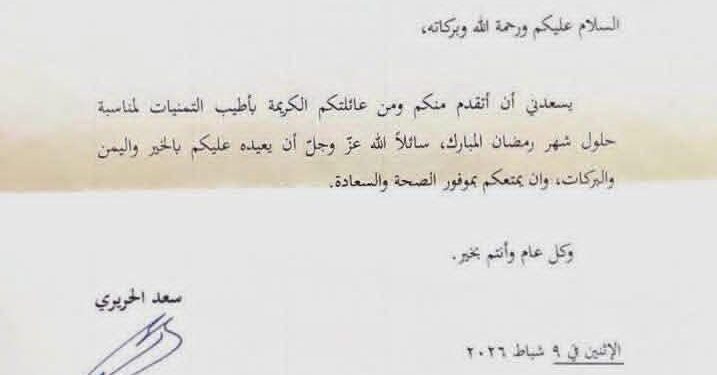 السلام عليكم ورحمة الله وبركاته،
يسعدني أن أتقدم منكم ومن عائلتكم الكريمة بأطيب التمنيات لمناسبة
حلول شهر رمضان المبارك، سائلاً الله عزّ وجلّ أن يعيده عليكم بالخير واليمن
والبركات، وان يمتعكم بموفور الصحة والسعادة.
وكل عام وأنتم بخير.
سعد الحريري
الإثنين في ٩ شباط ٢٠٢٦